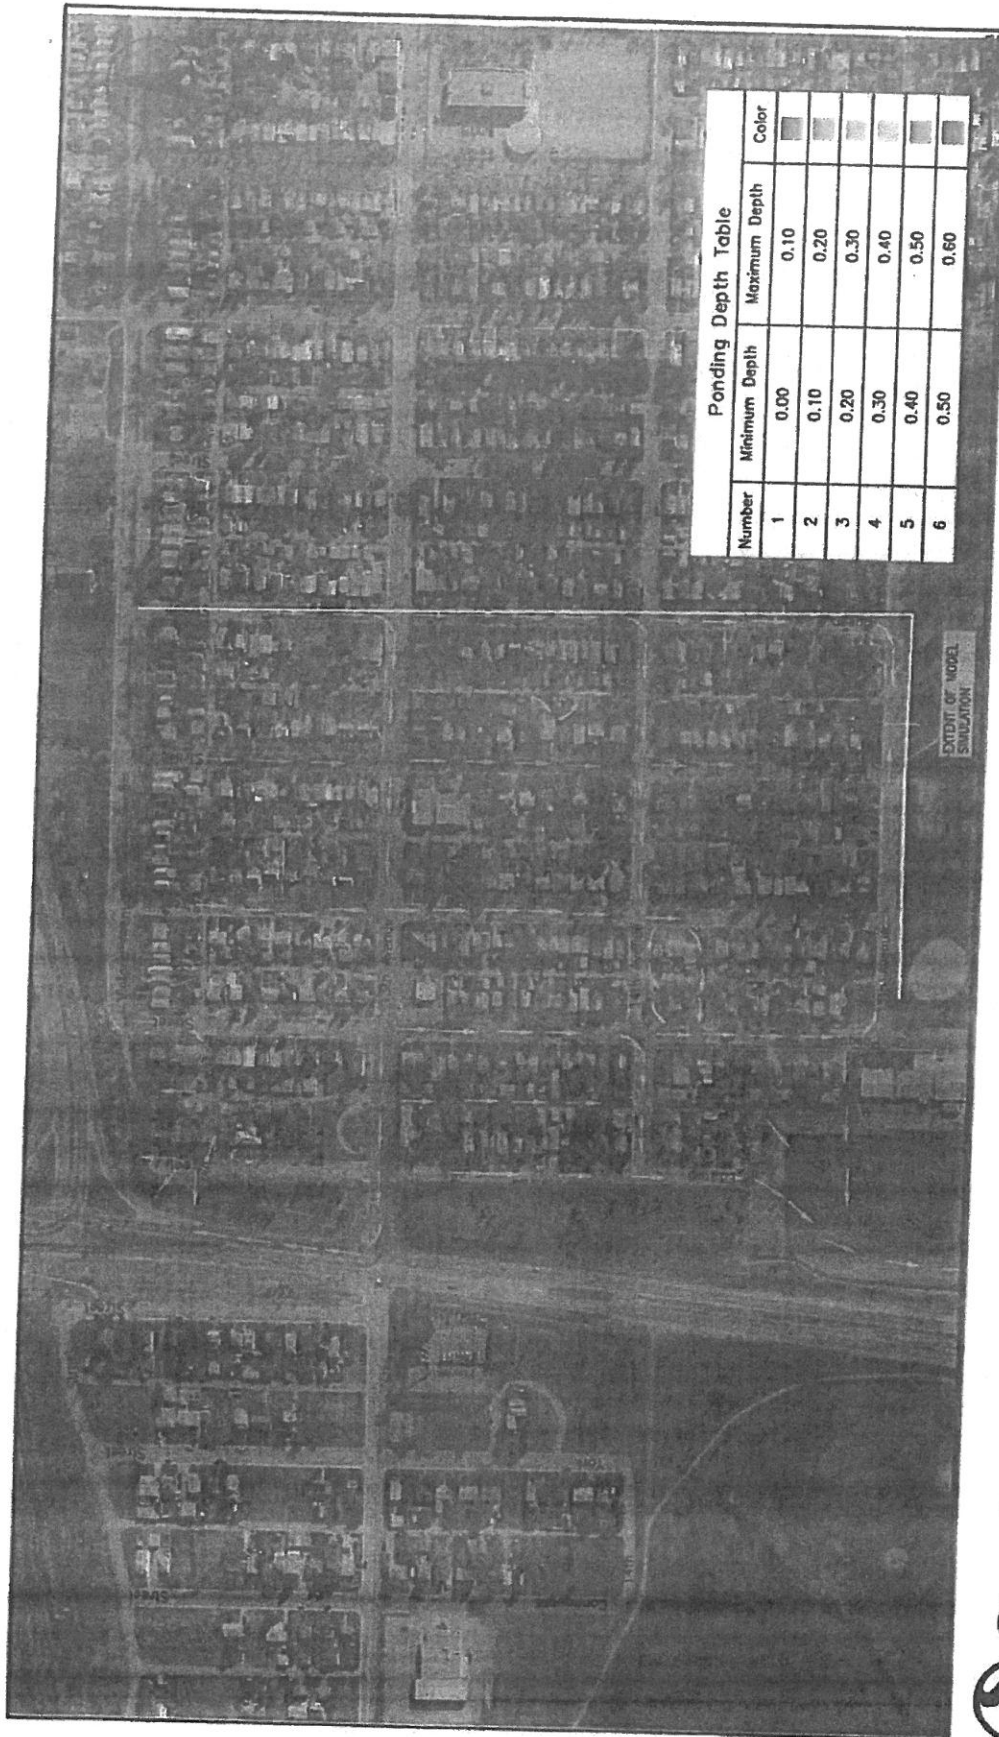 Ponding Depth Table
Number Minimum Depth Maximum Depth Color
1 0.00 0.10
2 0.10 0.20
3 0.20 0.30
4 0.30 0.40
5 0.40 0.50
6 0.50 0.60
EXTENT OF MODEL
SIMULATION
Street
Street
Street
York
15th